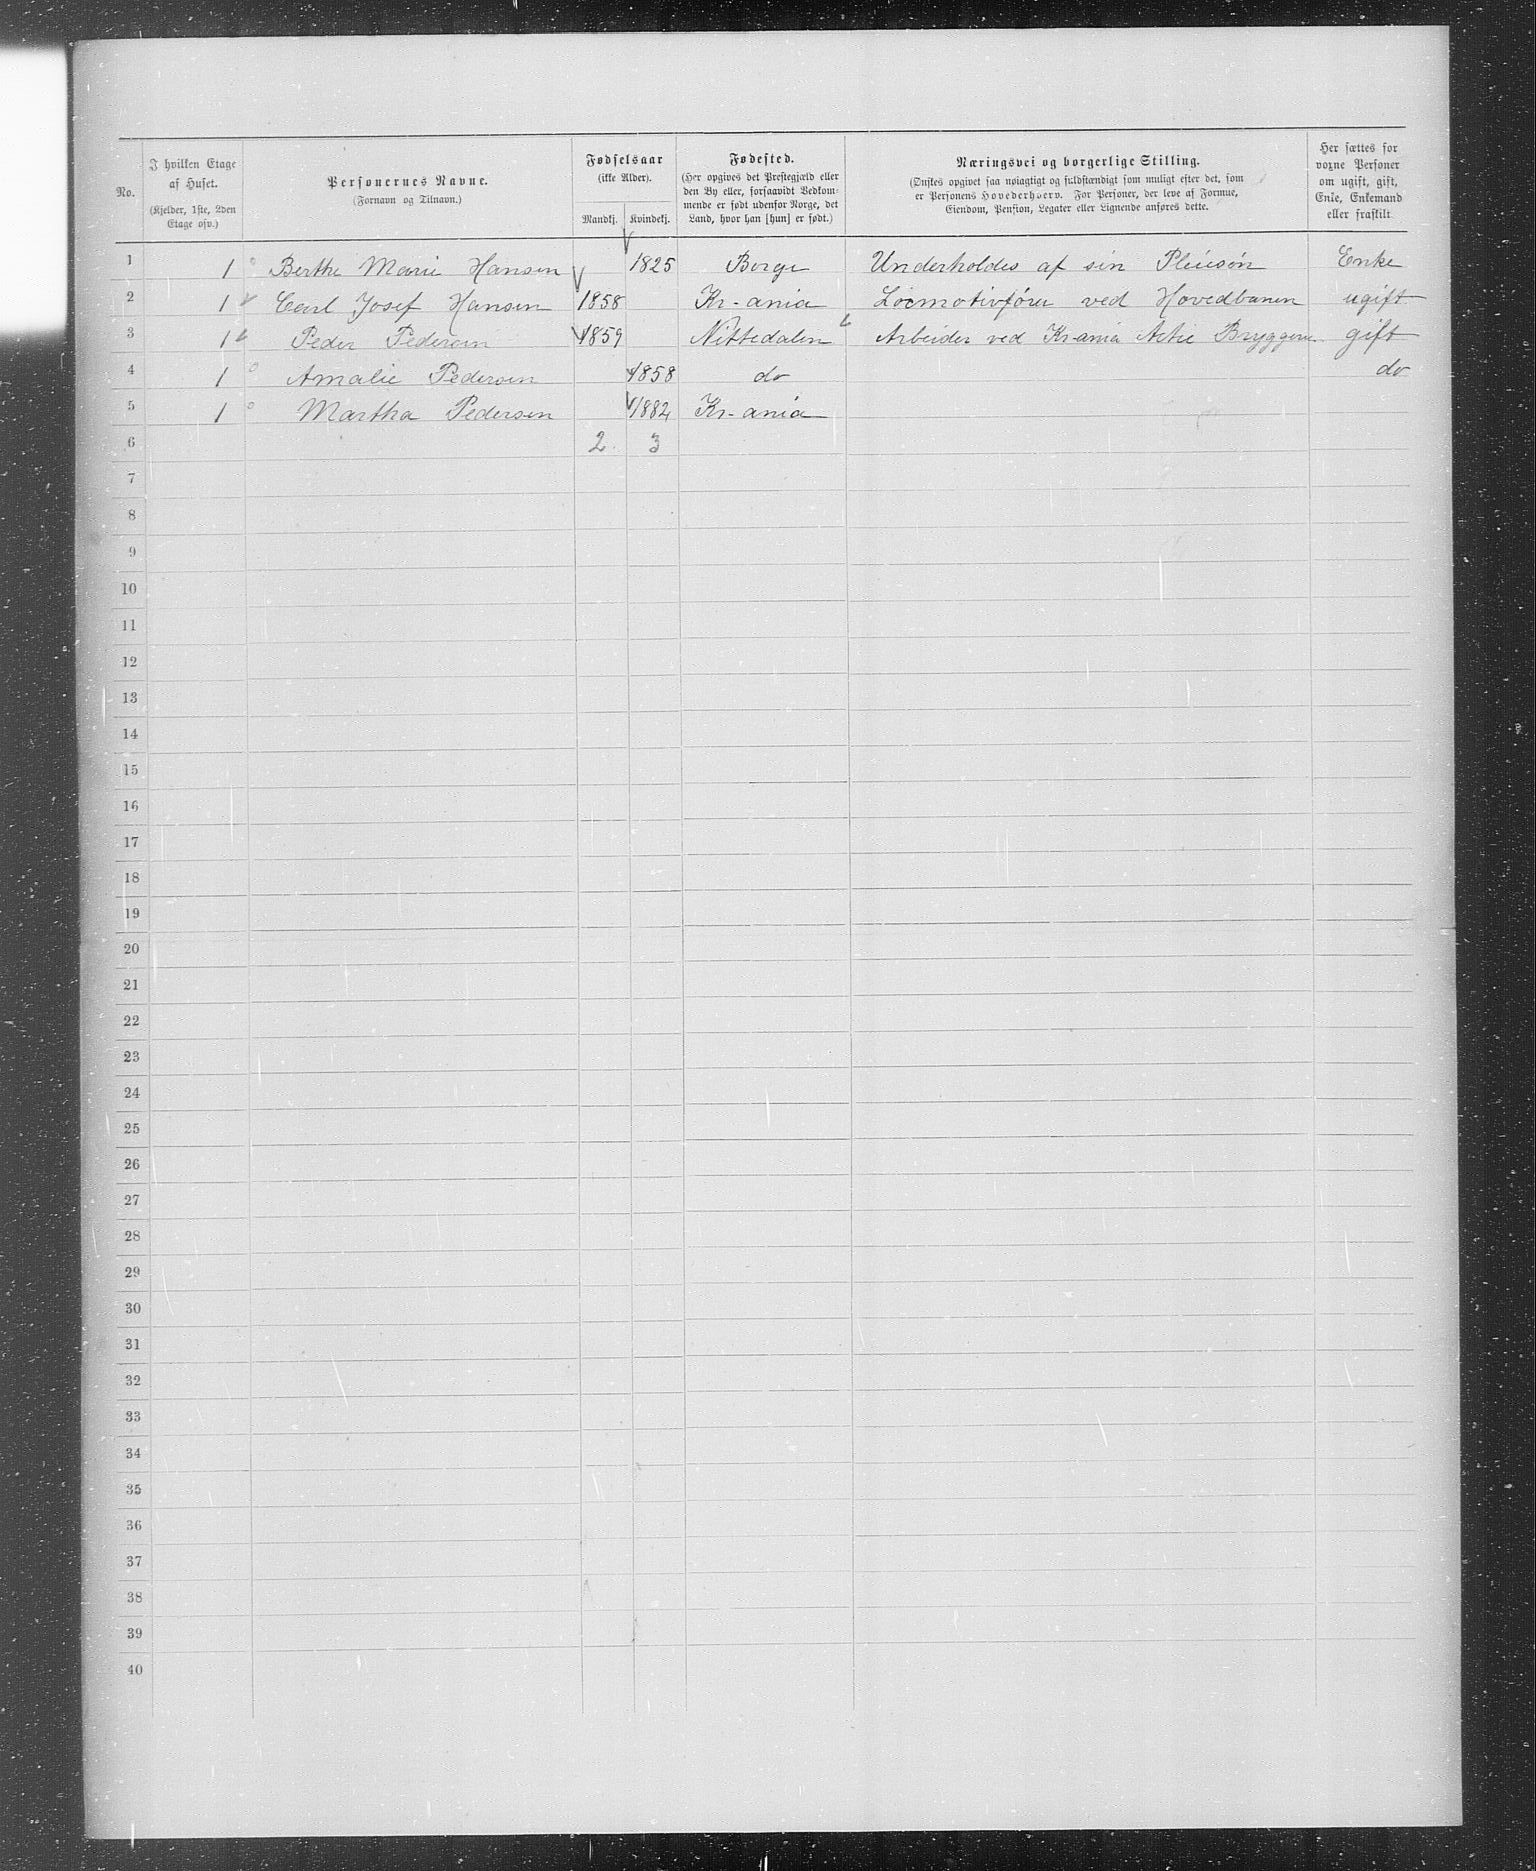 No.
I hvilken Etage af Huset.
(Kjelder, 1ste, 2den Etage osv.)
Personernes Navne.
(Fornavn og Tilnavn.)
Fødselsaar
(ikke Alder).
Mandkj. Kvindekj.
Fødested.
(Her opgives det Prestegjæld eller
den By eller, forsaavidt Vedkom-
mende er født udenfor Norge, det
Land, hvor han [hun] er født.)
Næringsvei og borgerlige Stilling.
(Ønskes opgivet saa nøiagtigt og fuldstændigt som muligt efter det, som
er Personens Hovederhverv. For Personer, der leve af Formue,
Eiendom, Pension, Legater eller Lignende anføres dette.
Her sættes for
voxne Personer
om ugift, gift,
Enke, Enkemand
eller fraskilt
1 1 Berthe Marie Hansen 1825 Borge Underholdes af sin Pleiesøn Enke
2 1 Carl Josef Hansen 1858 Kr-ania Locmotivfører ved Hovedbanen ugift
3 1 Peder Pedersen 1859 Nittedalen Arbeider ved Kr-ania Actie Bryggeri gift
4 1 Amalie Pedersen 1858 do do
5 1 Martha Pedersen 1882 Kr-ania
6 2 3
7
8
9
10
11
12
13
14
15
16
17
18
19
20
21
22
23
24
25
26
27
28
29
30
31
32
33
34
35
36
37
38
39
40